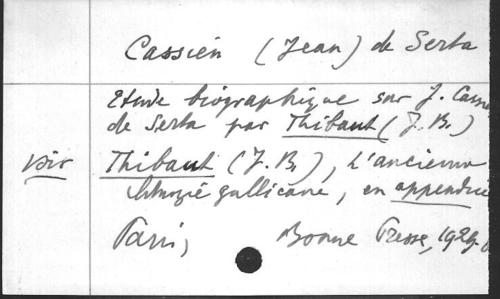 Cassien (Jean) de Serta
Etude biographique sur J. Cassie
de Serta par Thibaut (J. B.)
voir Thibaut (J. B.), L'ancienne
liturgie gallicane, en appendice
Paris, Bonne Presse, 1929.